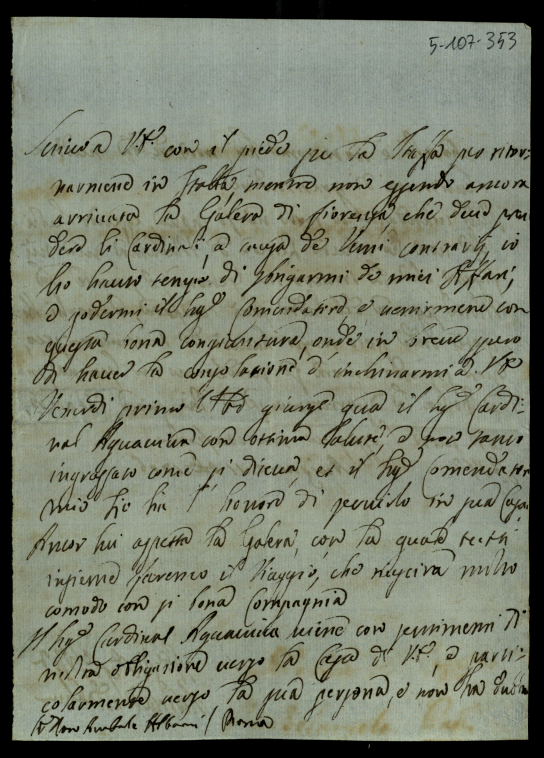 5-107-353
Scrivo a V.E. con il piede per la staffa per ritor-
narmene in Italia, mentre non essendo ancora
arrivata la Galera di fiorenza che deve pren
dere li Cardinali, a causa de Venti contrarij, io
ho hauto tempo di sbrigarmi de miei Affari,
e godermi il Sig.r Comendatore e venirmene con
questa bona congiuntura, onde in breve spero
di haver la consolatione d'inchinarmi a V.E.
Venerdi primo giunse qua il Sig.r Cardi-
nal Aquaviva con ottima salute, e non tanto
ingrassato come si diceva, et il Sig.r Comendatore
mio Zio ha l'honore di servirlo in sua Casa
Ancor lui aspetta la Galera, con la quale tutti
insieme faremo il Viaggio, che riuscirà molto
comodo con si bona Compagnia
Il Sig.r Cardinal Aquaviva viene con sentimenti di
molta obligatione verso la Casa di V.E., e parti-
colarmente verso la sua persona, e non ha
Don Annibale Albani / Roma